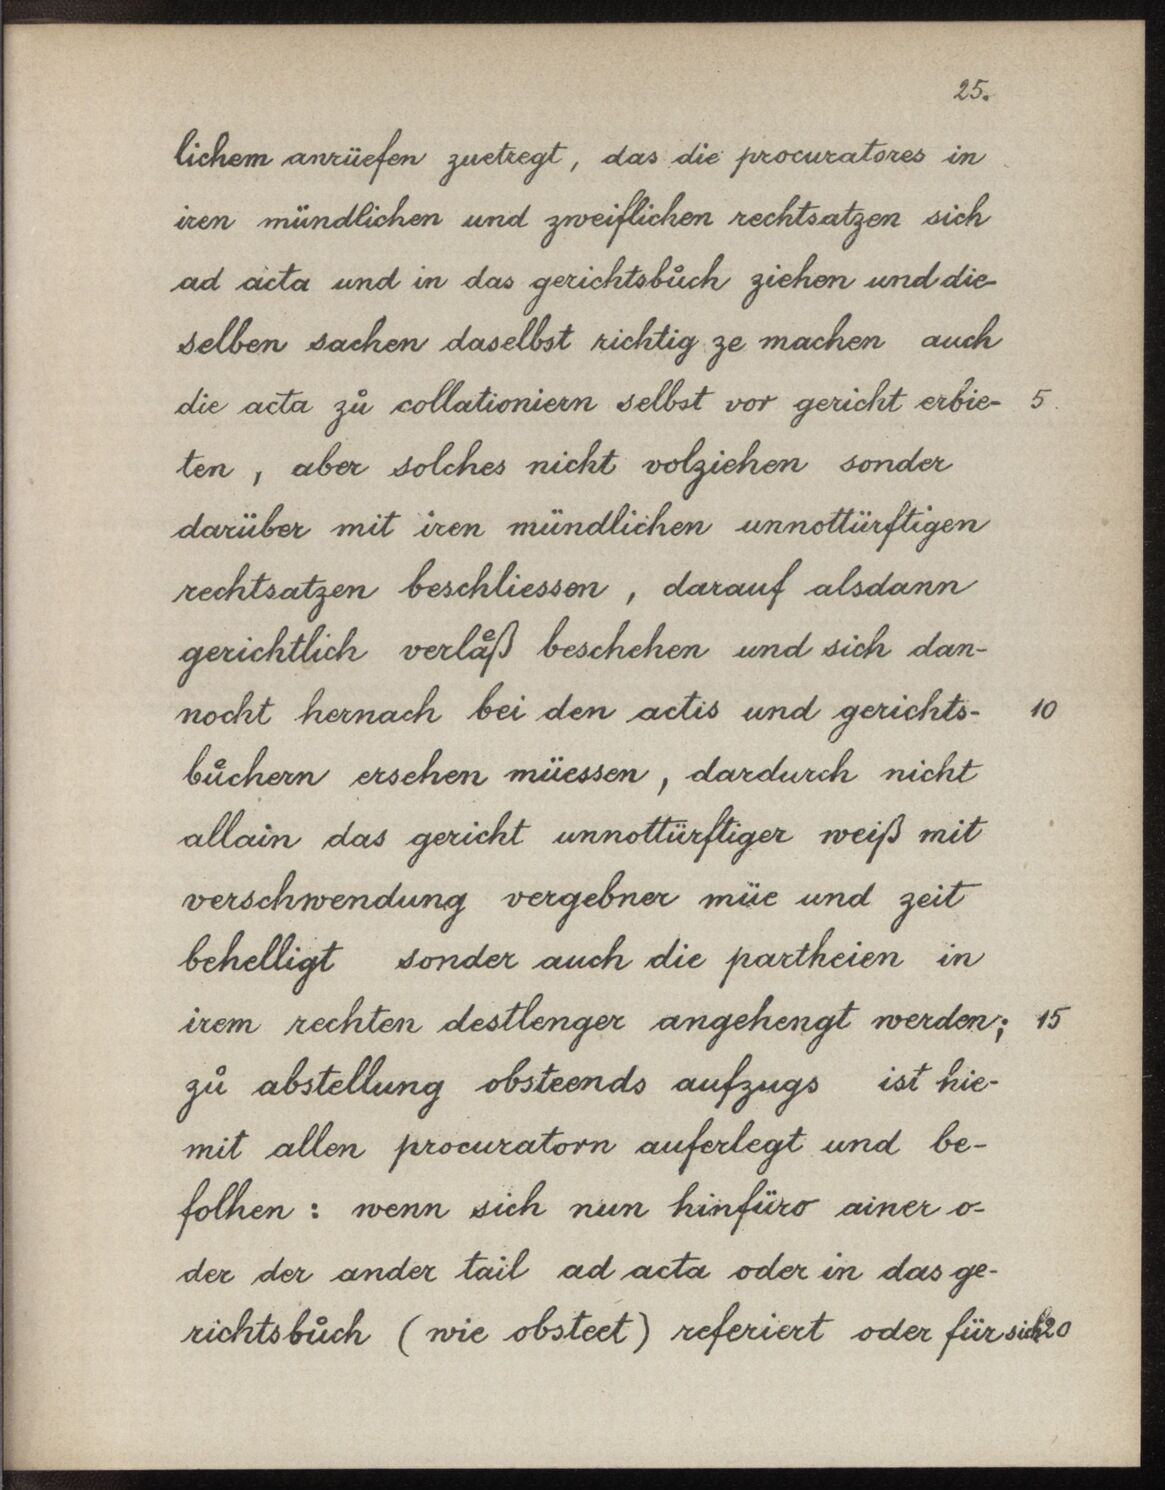 25.
lichem anrüefen zuetregt, das die procuratores in
iren mündlichen und zweiflichen rechtsatzen sich
ad acta und in das gerichtsbůch ziehen und die-
selben sachen daselbst richtig ze machen auch
die acta zů collationiern selbst vor gericht erbie- 5
ten, aber solches nicht volziehen sonder
darüber mit iren mündlichen unnottürftigen
rechtsatzen beschliessen, darauf alsdann
gerichtlich verlåß beschehen und sich dan-
nocht hernach bei den actis und gerichts- 10
bůchern ersehen müessen, dardurch nicht
allain das gericht unnottürftiger weiß mit
verschwendung vergebner müe und zeit
behelligt sonder auch die partheien in
irem rechten destlenger angehengt werden; 15
zů abstellung obsteends aufzugs ist hie-
mit allen procuratorn auferlegt und be-
folhen: wenn sich nun hinfüro ainer o-
der der ander tail ad acta oder in das ge-
richtsbůch (wie obsteet) referiert oder für sich 20